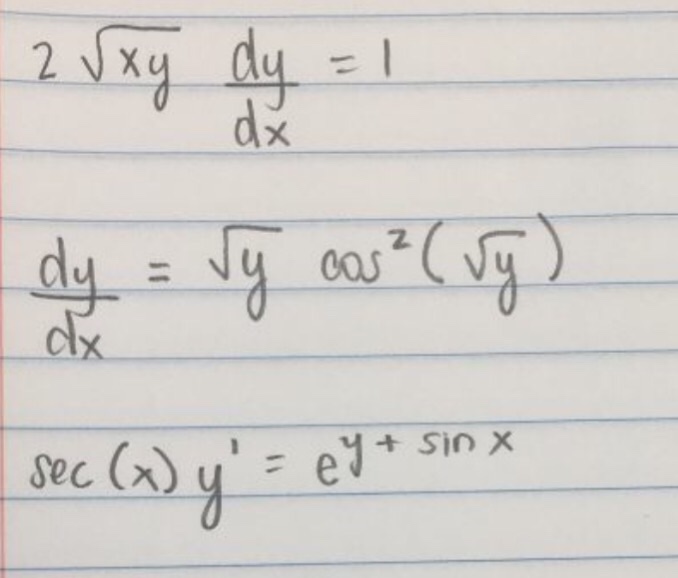 2 √xy dy/dx = 1
dy/dx = √y cos²(√y)
sec(x) y' = e^(y + sin x)